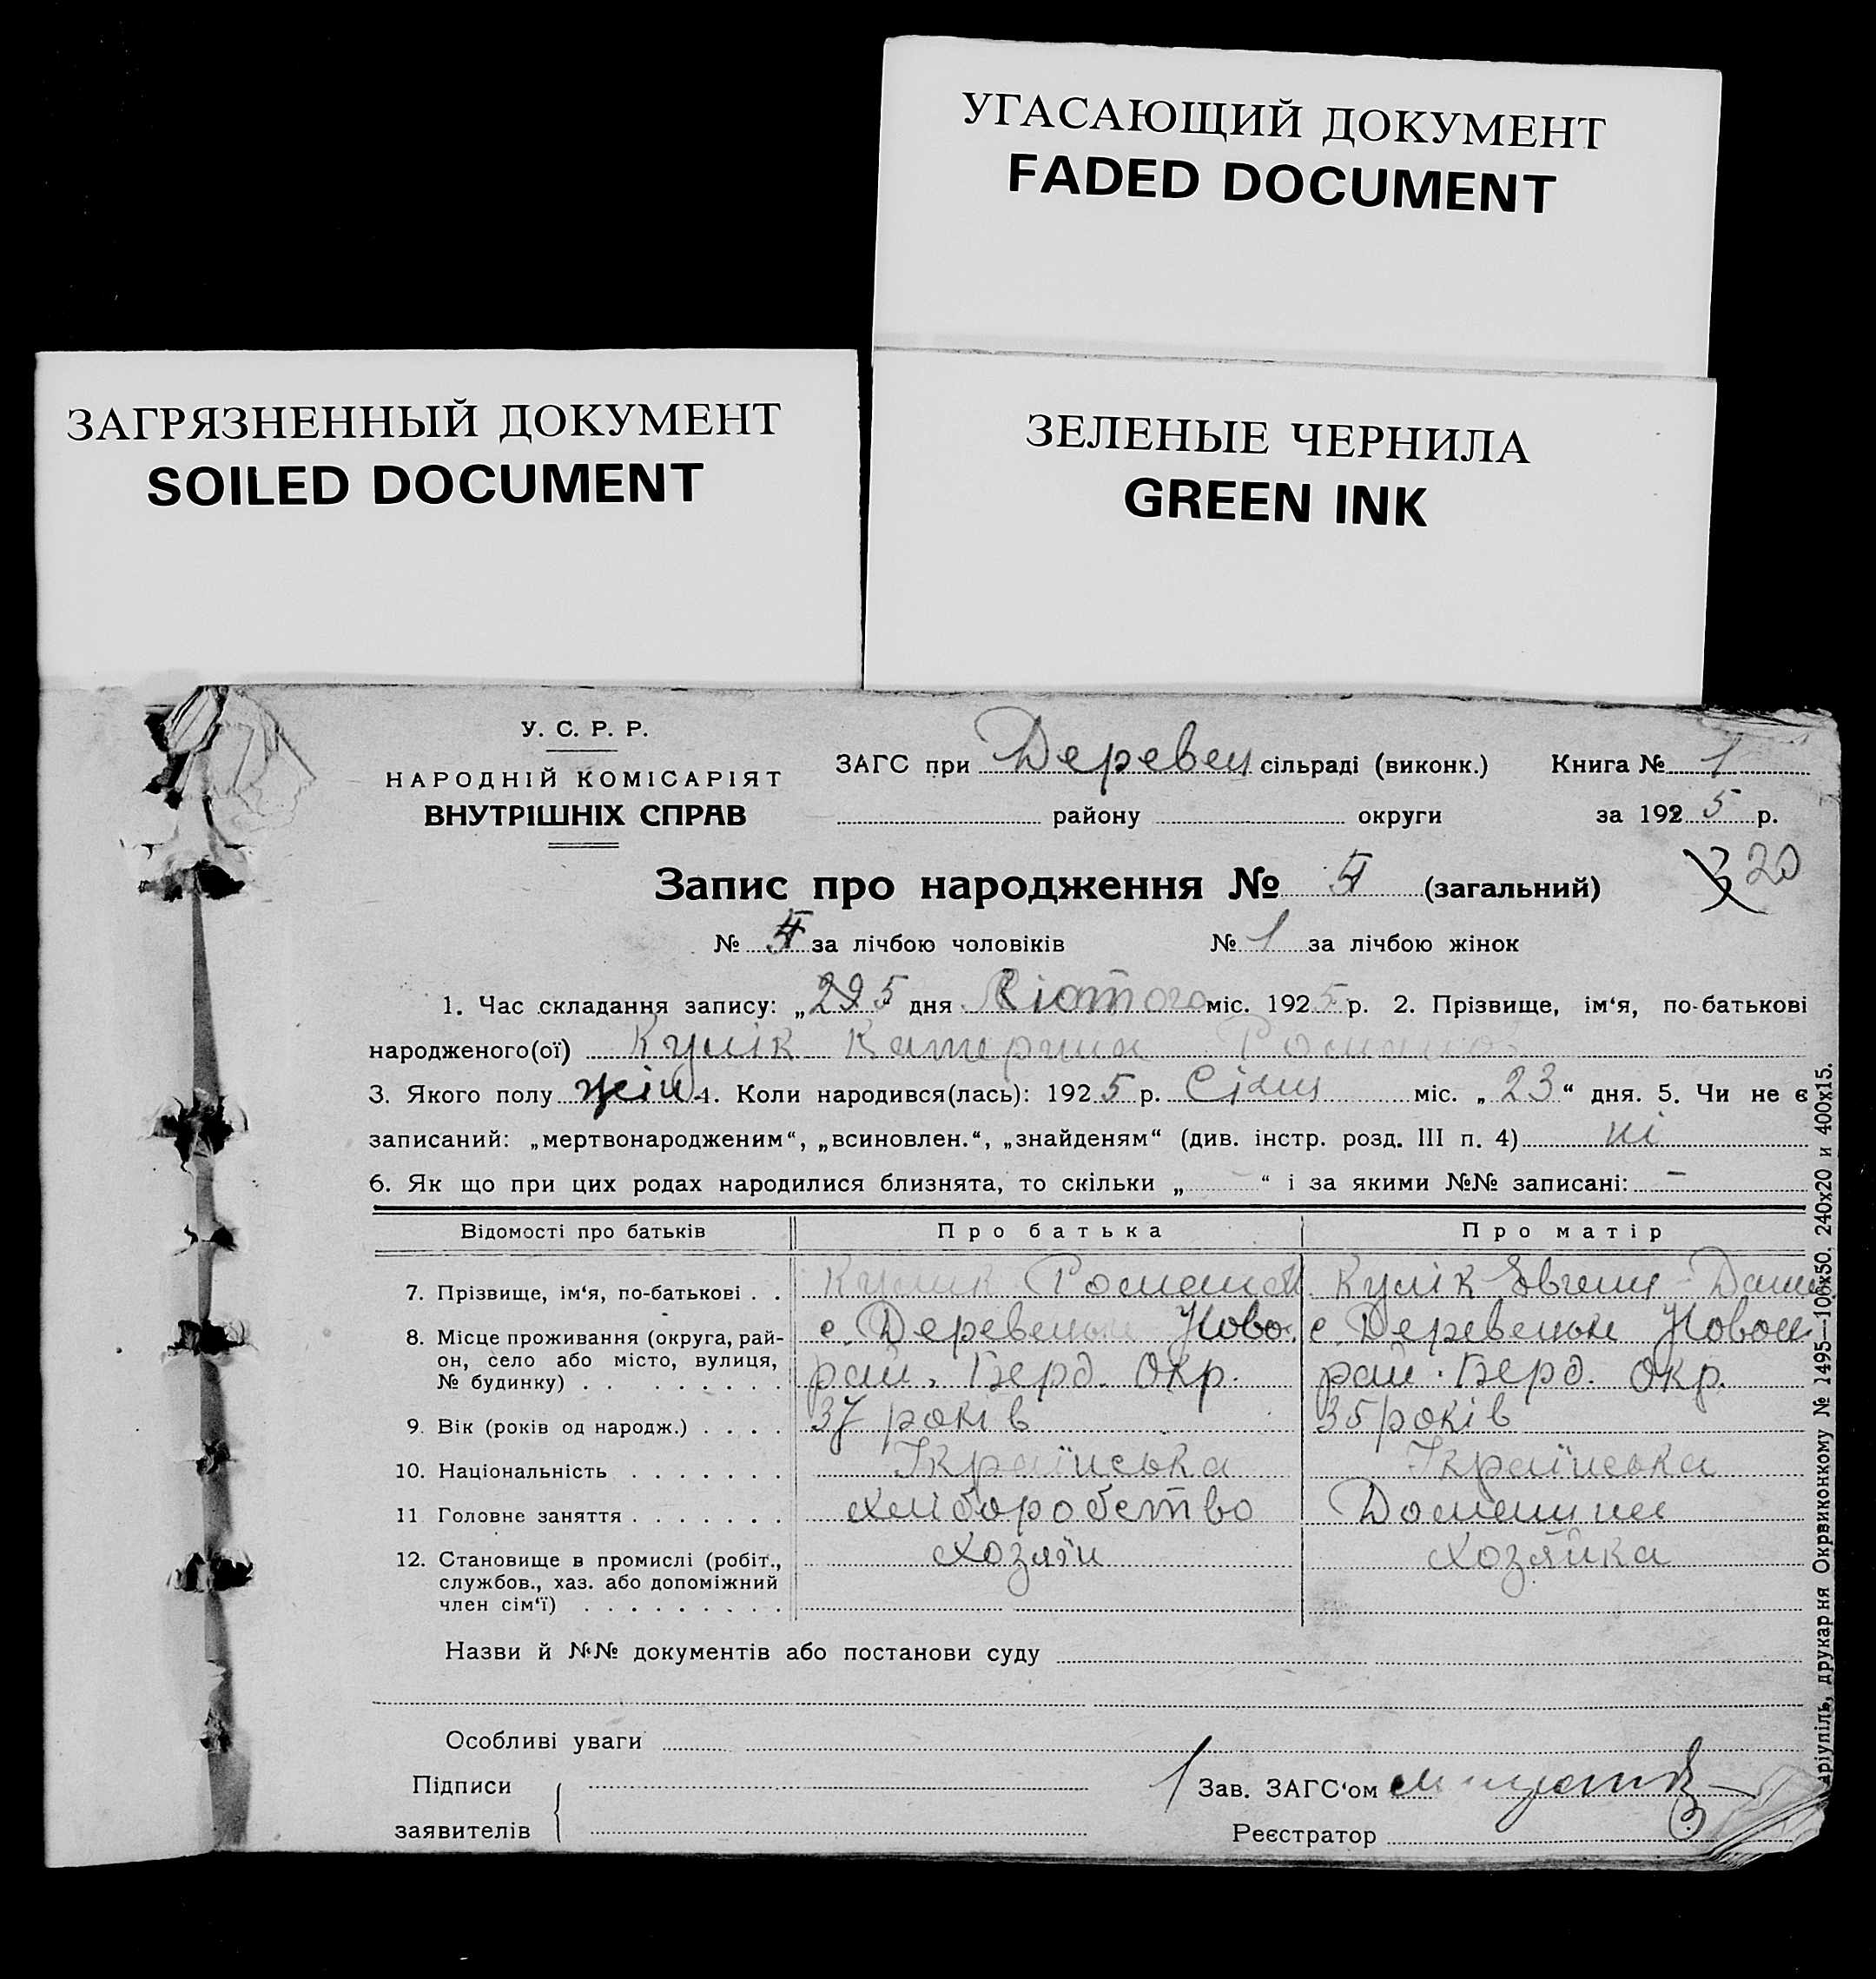 УГАСАЮЩИЙ ДОКУМЕНТ
FADED DOCUMENT
ЗАГРЯЗНЕННЫЙ ДОКУМЕНТ
SOILED DOCUMENT
ЗЕЛЕНЫЕ ЧЕРНИЛА
GREEN INK
У. С. Р. Р.
НАРОДНІЙ КОМІСАРІЯТ
ВНУТРІШНІХ СПРАВ
ЗАГС при Деревец сільраді (виконк.) Книга № 1
району округи за 192 5 р.
20
Запис про народження № 5 (загальний)
№ 4 за лічбою чоловіків № 1 за лічбою жінок
1. Час складання запису: „ 5 дня Лютого міс. 192 5 р. 2. Прізвище, ім‘я, по-батькові
народженого(ої) Кулік Катерина Романов
3. Якого полу жін 4. Коли народився(лась): 192 5 р. Січш міс. „ 23 “ дня. 5. Чи не є
записаний: „мертвонародженим“, „всиновлен.“, „знайденям“ (див. інстр. розд. III п. 4) ні
6. Як що при цих родах народилися близнята, то скільки „ - “ і за якими №№ записані: -
Відомості про батьків Про батька Про матір
7. Прізвище, ім‘я, по-батькові . . Кулик Роман Кулік Евгения
8. Місце проживання (округа, рай- с. Деревецьке Ново. с Деревецьке Новон
он, село або місто, вулиця, рай. Берд. Окр. рай. Берд. Окр.
№ будинку) . . . . . . . . .
9. Вік (років од народж.) . . . . 37 років 35 років
10. Національність . . . . . . . Українська Українська
11 Головне заняття . . . . . . . хліборобство Домашнє
12. Становище в промислі (робіт., хозяїн хозяйка
службов., хаз. або допоміжний
член сім‘ї) . . . . . . . . .
Назви й №№ документів або постанови суду
Особливі уваги
Підписи
заявителів
Зав. ЗАГС‘ом
Реєстратор
аріупіль, друкарня Окрвиконкому № 1495—106х50. 240х20 и 400х15.